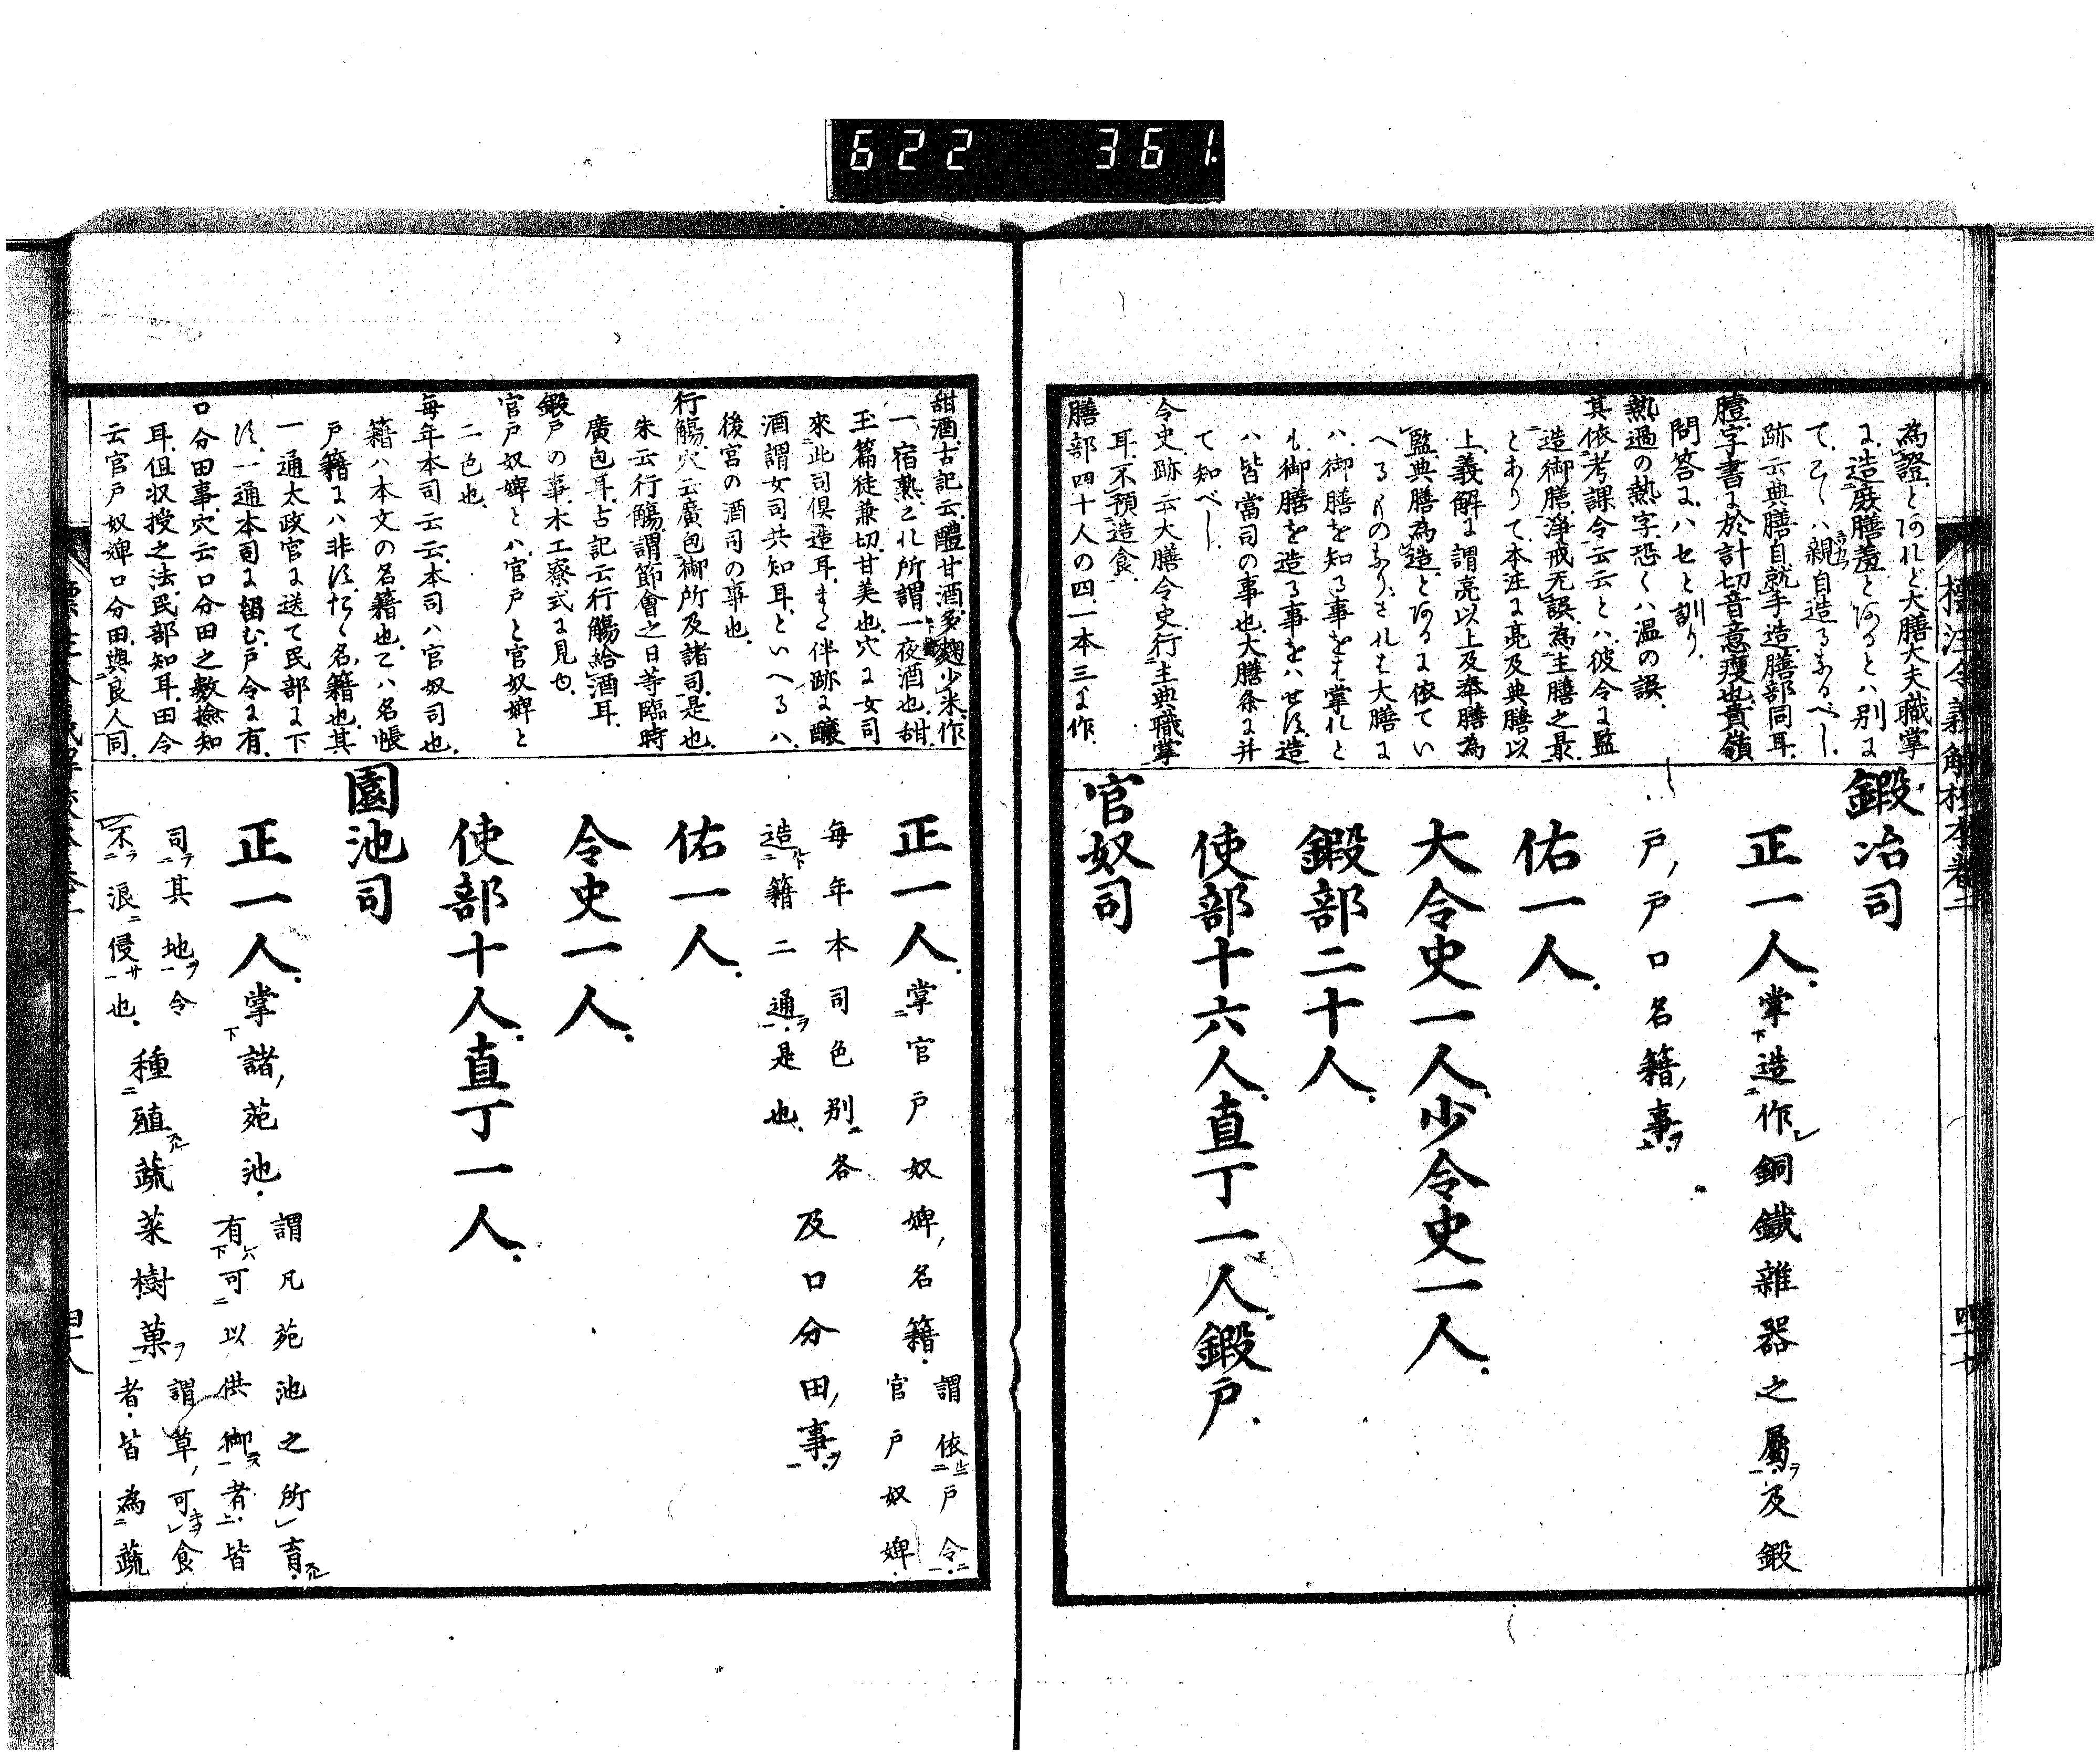 622 361.
標注令義解校本巻二
為證とあれど大膳大夫職掌
に造庶膳羞とあるとハ別に
て、こゝハ親自造るなるべし、
跡云典膳自就手造膳部同耳、
膳字書に於計切音意瘦也貴嶺
問答に、ハセと訓り、
熱過の熱字、恐くハ温の誤、
其依考課令云云とハ、彼令に監
造御膳、淨戒无誤、為主膳之最、
とありて、本注に亮及典膳以
上、義解に謂亮以上及奉膳為
監典膳為造とあるに依てい
へるものなり、されど大膳に
ハ、御膳を知る事をも掌れと
も、御膳を造る事をハせず、造
ハ皆當司の事也、大膳条に并
て知べし、
令史、跡云大膳令史、行主典職掌
耳、不預造食、
膳部四十人の四、一本三に作、
鍛冶司
正一人、掌造作銅鐵雜器之屬、及鍛
戸、戸口名籍事、
佑一人、
大令史一人、少令史一人、
鍛部二十人、
使部十六人、直丁一人、鍛戸、
官奴司
甜酒、古記云、醴甘酒、多麹少米作
一宿熟、これ所謂一夜酒也、甜、
玉篇徒兼切、甘美也、穴に女司
來此司倶造耳、また伴跡に釀
酒謂女司共知耳、といへるハ、
後宮の酒司の事也、
行觴、穴云廣包御所及諸司、是也、
朱云行觴、謂節會之日等臨時
廣包耳、古記云行觴給酒耳、
鍛戸の事、木工寮式に見也、
官戸奴婢とハ、官戸と官奴婢と
二色也、
毎年本司云云、本司ハ官奴司也、
籍ハ本文の名籍也、こハ名帳
戸籍にハ非ず、たゞ名籍也、其
一通太政官に送て民部に下
ず、一通本司に留む、戸令に有、
口分田事、穴云口分田之數撿知
耳、但収授之法、民部知耳、田令
云官戸奴婢口分田、與良人同、
正一人、掌官戸奴婢、名籍、謂依戸令、官戸奴婢、
毎年本司色別、各造籍二通、是也、及口分田、事、
佑一人、
令史一人、
使部十人、直丁一人、
園池司
正一人、掌諸、苑池、謂凡苑池之所育、有可以供御者、皆
司其地、令不浪侵也、種殖蔬菜樹菓、謂草、可食者、皆為蔬